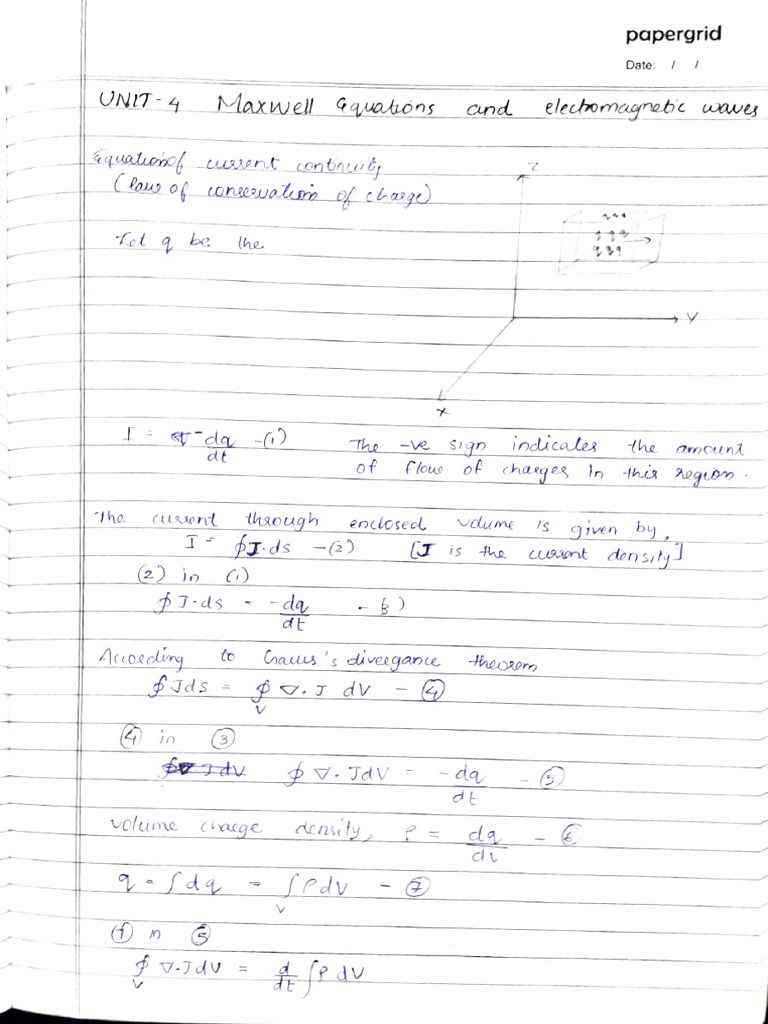 papergrid
Date: / /
UNIT-4 Maxwell Equations and electromagnetic waves
Equation of current continuity
(law of conservation of charge)
Z
q q q
q q q
q q q
Let q be the
Y
X
I = -dq/dt -(1) The -ve sign indicates the amount
of flow of charges in this region.
The current through enclosed volume is given by,
I = ∮J.ds -(2) [J is the current density]
(2) in (1)
∮J.ds = -dq/dt - 3)
According to Gauss's divergance theorem
∮Jds = ∮_V ∇.J dV - ④
④ in ③
∮∇.JdV = -dq/dt - ⑤
volume charge density, ρ = dq/dv - ⑥
q = ∫dq = ∫_V ρdV - ⑦
⑦ in ⑤
∮_V ∇.JdV = d/dt ∫ρ dV